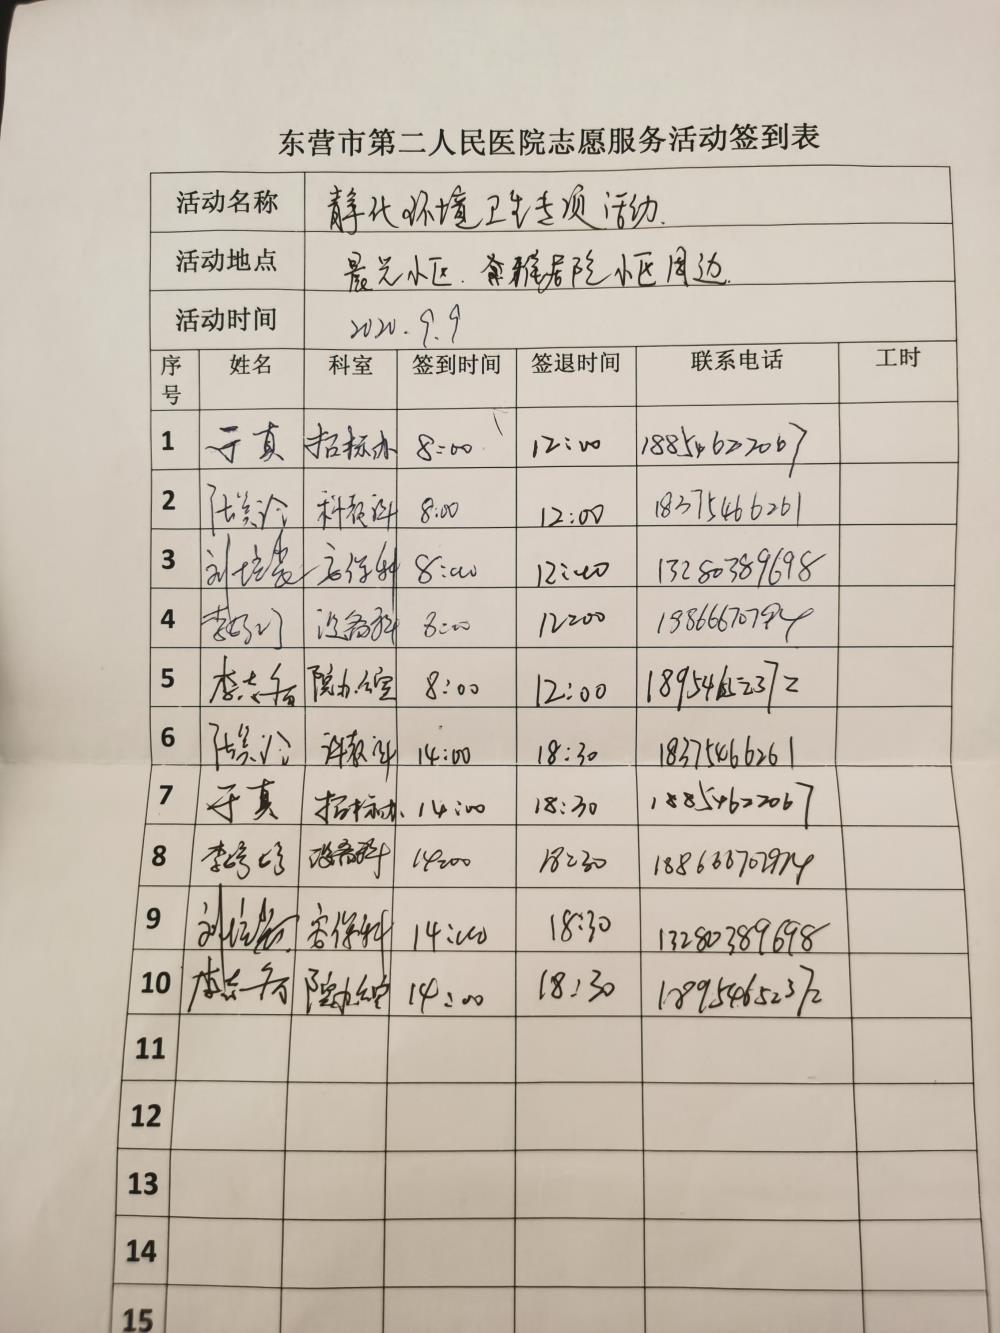 东营市第二人民医院志愿服务活动签到表
活动名称 静化环境卫生专项活动.
活动地点 晨光小区. 雅居院小区周边.
活动时间 2020.9.9
序号 姓名 科室 签到时间 签退时间 联系电话 工时
1 于真 招标办 8:00 12:00 18854622067
2 科教科 8:00 12:00 18375466261
3 安保科 8:00 12:00 13280389698
4 设备科 8:00 12:00
5 院办公室 8:00 12:00 18954652372
6 科教科 14:00 18:30 18375466261
7 于真 招标办. 14:00 18:30 18854622067
8 设备科 14:00 18:30
9 安保科 14:00 18:30 13280389698
10 院办公室 14:00 18:30 18954652372
11
12
13
14
15